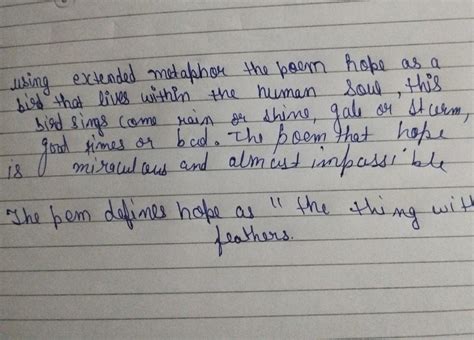 using extended metaphor the poem hope as a
bird that lives within the human soul, this
bird sings come rain or shine, gale or sturm,
good times or bad. The poem that hope
is miraculous and almust impassible
The pem defines hope as " the thing with
feathers.